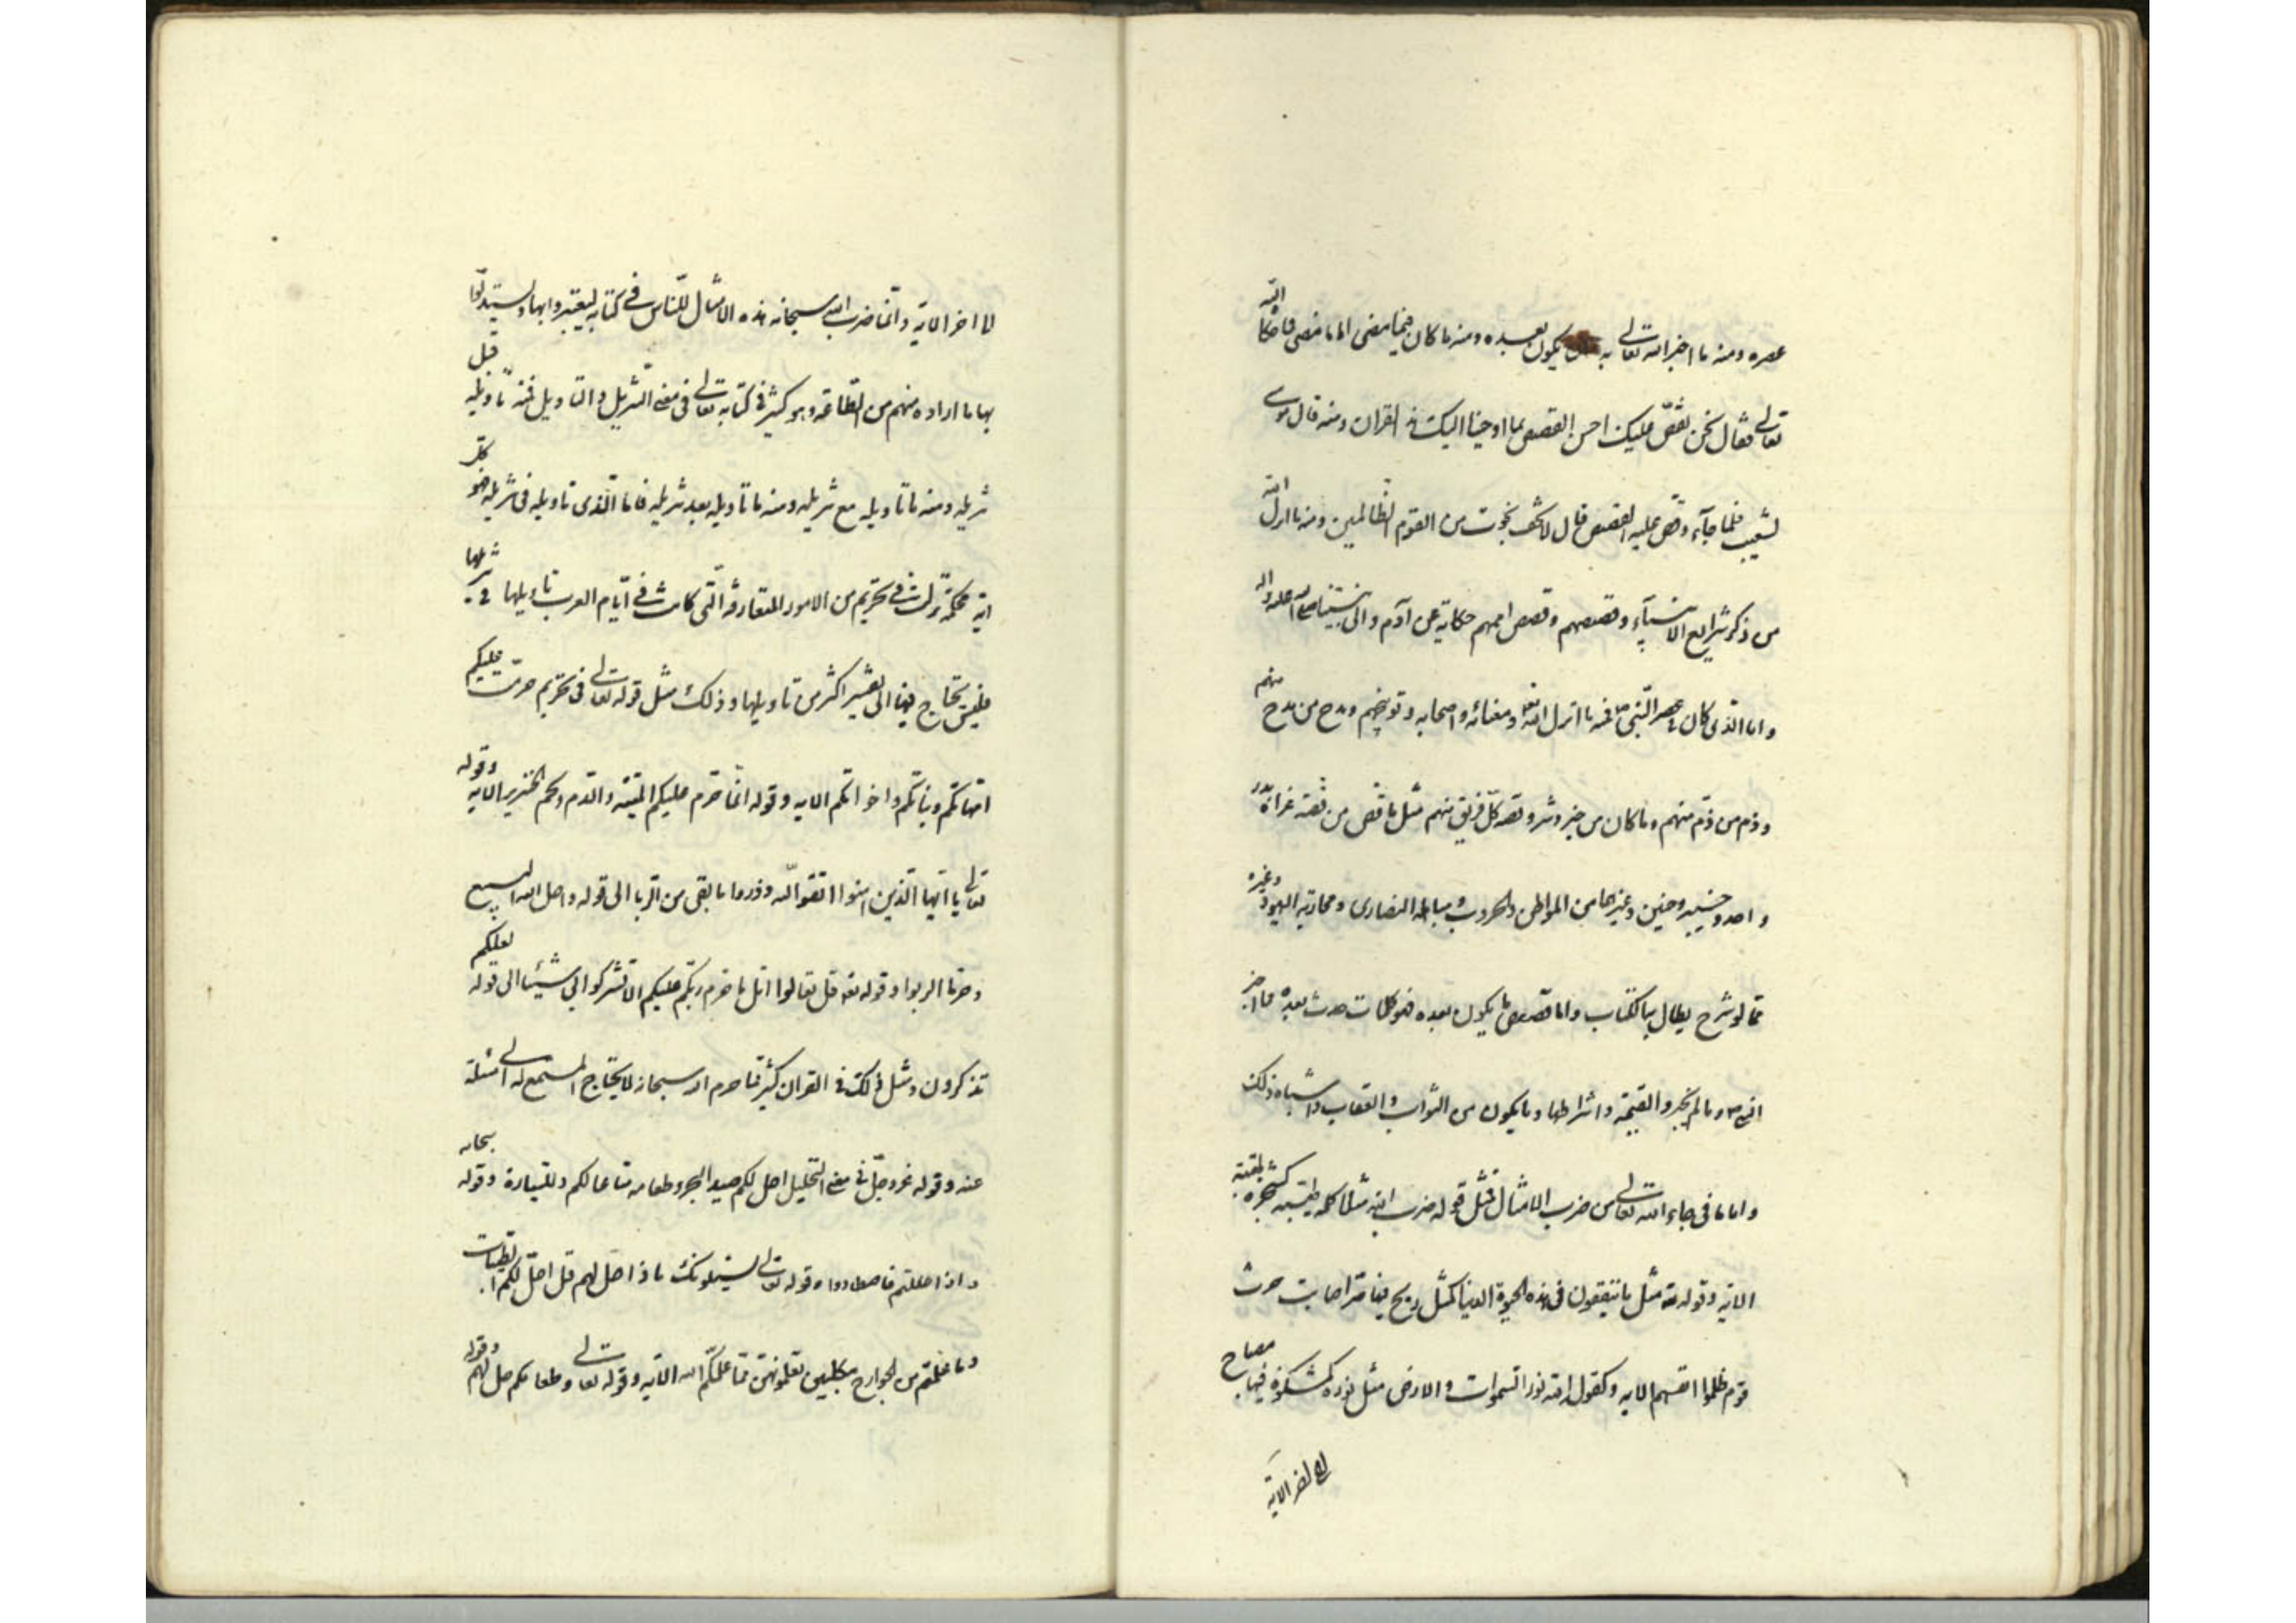 عصره ومنه ما اخبر الله تعالى به انه يكون بعده ومنه ما كان فيما مضى اما ما مضى فما حكاه الله
تعالى فقال نحن نقص عليك احسن القصص بما اوحينا اليك هذا القران ومنه قال موسى
لشعيب فلما جآءه وقص عليه القصص قال لا تخف نجوت من القوم الظالمين ومنه ما انزل الله
من ذكر شرايع الانبيآء وقصصهم وقصص اممهم حكاية عن آدم والى نبينا صلى الله عليه واله
واما الذى كان في عصر النبى ص فمنه ما انزل الله تعا ومغانه واصحابه وتوبيخهم ومدح من مدح منهم
وذم من ذم منهم وما كان من خير وشر وقصه كل فريق منهم مثل ما قص من قصة غزاة بدر
واحد وخيبر وحنين وغيرها من المواطن والحروب ومباهله النصارى ومحاربه اليهود وغيره
مما لو شرح يطال به الكتاب واما قصص ما يكون بعده فهو كلما حدث بعده مما اخبر
النبى ص وما لم يخبر والقيمة واشراطها وما يكون من الثواب والعقاب واشباه ذلك
واما ما فى جاء الله تعالى من ضرب الامثال فمثل قوله ضرب الله مثلا كلمة طيبة كشجرة طيبة
الاية وقوله تعه مثل ما ينفقون فى هذه الحيوة الدنيا كمثل ريح فيها صر اصابت حرث
قوم ظلموا انفسهم الايه وكقول الله نور السموات والارض مثل نوره كمشكوة فيها مصباح
الى اخر الاية
الا اخر الاية وانما ضرب الله سبحانه هذه الامثال للناس فى كتابه ليعتبروا بها ويستدلوا
بها ما اراده منهم من الطاعة وهو كثير فى كتابه تعالى فى معنى التنزيل والتاويل فمنه تاويله قبل
تنزيله ومنه ما تاويله مع تنزيله ومنه ما تاويله بعد تنزيله فاما الذى تاويله فى تنزيله فهو كل
اية محكمة نزلت فى تحريم من الامور المتعارفة التى كانت فى ايام العرب تاويلها في تنزيلها
فليس يحتاج فيها الى تفسير اكثر من تاويلها وذلك مثل قوله تعالى فى تحريم حرمت عليكم
امهاتكم وبناتكم واخواتكم الايه وقوله انما حرم عليكم الميتة والدم ولحم الخنزير الايه وقوله
تعالى يا ايها الذين امنوا اتقوا الله وذروا ما بقى من الربا الى قوله واحل الله البيع
وحرم الربوا وقوله تعه قل تعالوا اتل ما حرم ربكم عليكم الا تشركوا به شيئا الى قوله لعلكم
تذكرون ومثل ذلك فى القران كثير مما حرم الله سبحانه لا يحتاج المستمع له الى مسئلة
عنه وقوله عز وجل فى معنى التحليل احل لكم صيد البحر وطعامه متاعا لكم وللسيارة وقوله سبحانه
واذا حللتم فاصطادوا وقوله تعالى يسئلونك ماذا احل لهم قل احل لكم الطيبات
وما علمتم من الجوارح مكلبين تعلمونهن مما علمكم الله الآيه وقوله تعالى وطعامكم حل لهم وقوله